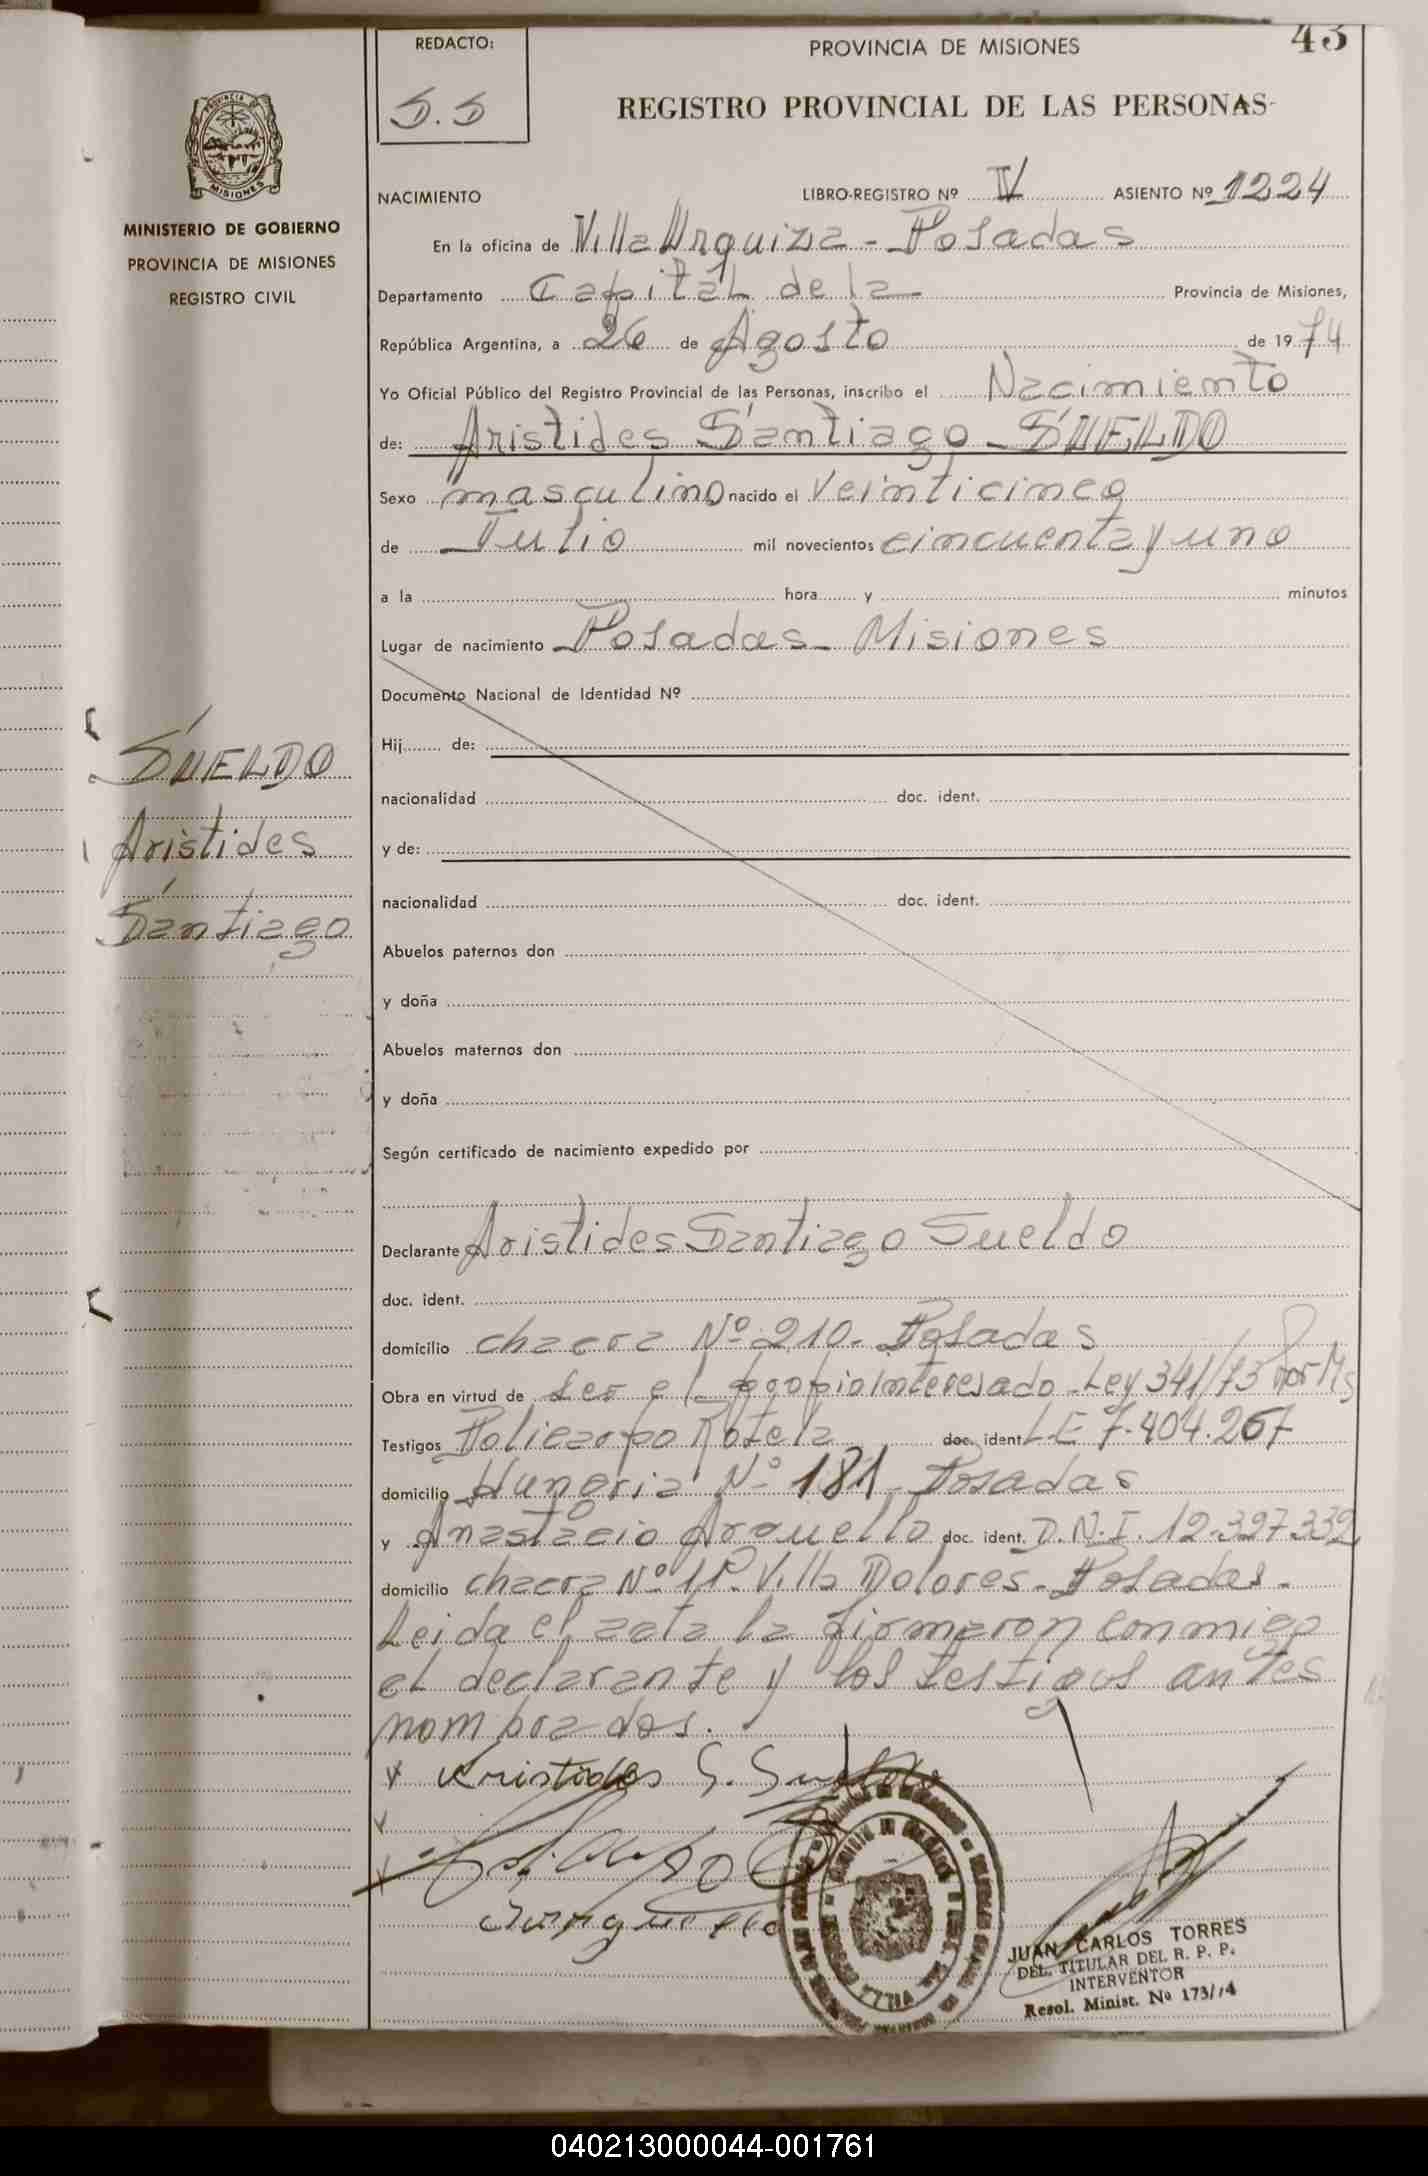 43
REDACTO:
S.S
PROVINCIA DE MISIONES
REGISTRO PROVINCIAL DE LAS PERSONAS
PROVINCIA DE
MISIONES
MINISTERIO DE GOBIERNO
PROVINCIA DE MISIONES
REGISTRO CIVIL
NACIMIENTO LIBRO-REGISTRO Nº IV ASIENTO Nº 1224
En la oficina de Villa Urquiza - Posadas
Departamento Capital de la Provincia de Misiones,
República Argentina, a 26 de Agosto de 1974
Yo Oficial Público del Registro Provincial de las Personas, inscribo el Nacimiento
de: Aristides Santiago SUELDO
Sexo masculino nacido el veinticinco
de Julio mil novecientos cincuenta y uno
a la hora y minutos
Lugar de nacimiento Posadas - Misiones
Documento Nacional de Identidad Nº
Hij de:
nacionalidad doc. ident.
y de:
nacionalidad doc. ident.
Abuelos paternos don
y doña
Abuelos maternos don
y doña
Según certificado de nacimiento expedido por
SUELDO
Aristides
Santiago
Declarante Aristides Santiago Sueldo
doc. ident.
domicilio chacra Nº 210 - Posadas
Obra en virtud de ser el propio interesado - Ley 341/73
Testigos Policarpo Rotela doc. ident. LE 7.404.267
domicilio Hungria Nº 181 - Posadas
y Anastacio Arguello doc. ident. D.N.I. 12.397.339
domicilio chacra Nº Villa Dolores - Posadas -
Leida el acta la firmaron conmigo
el declarante y los testigos antes
nombrados.
x Aristides S. Sueldo
Arguello
JUAN CARLOS TORRES
DEL. TITULAR DEL R. P. P.
INTERVENTOR
Resol. Minist. Nº 173/74
040213000044-001761